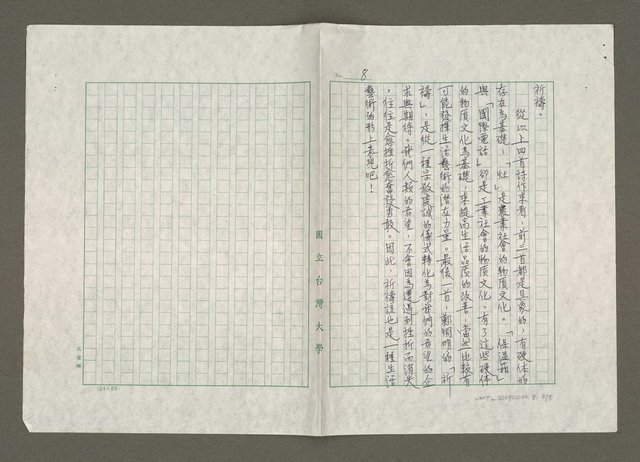 No. 8
祈禱。
從以上四首詩作來看,前三首都是具象的,有硬体的
存在為基礎,「灶」是農業社會的物质文化。「保溫箱」
與「國際電話」卻是工業社會的物质文化。有了這些硬体
的物质文化為基礎,來提高生活品质的改善,當然比較有
可能發揮生活藝術的潛在力量。最後一首,鄭烱明的「祈
禱」,是從一種宗教虔誠的儀式轉化為對我們的希望的企
求與期待。我們人類的希望,不會因為遭遇到挫折而消失
,往往是愈挫折愈奮發勇敢。因此,祈禱該也是一種生活
藝術的形上表現吧!
國立台灣大學
24×25